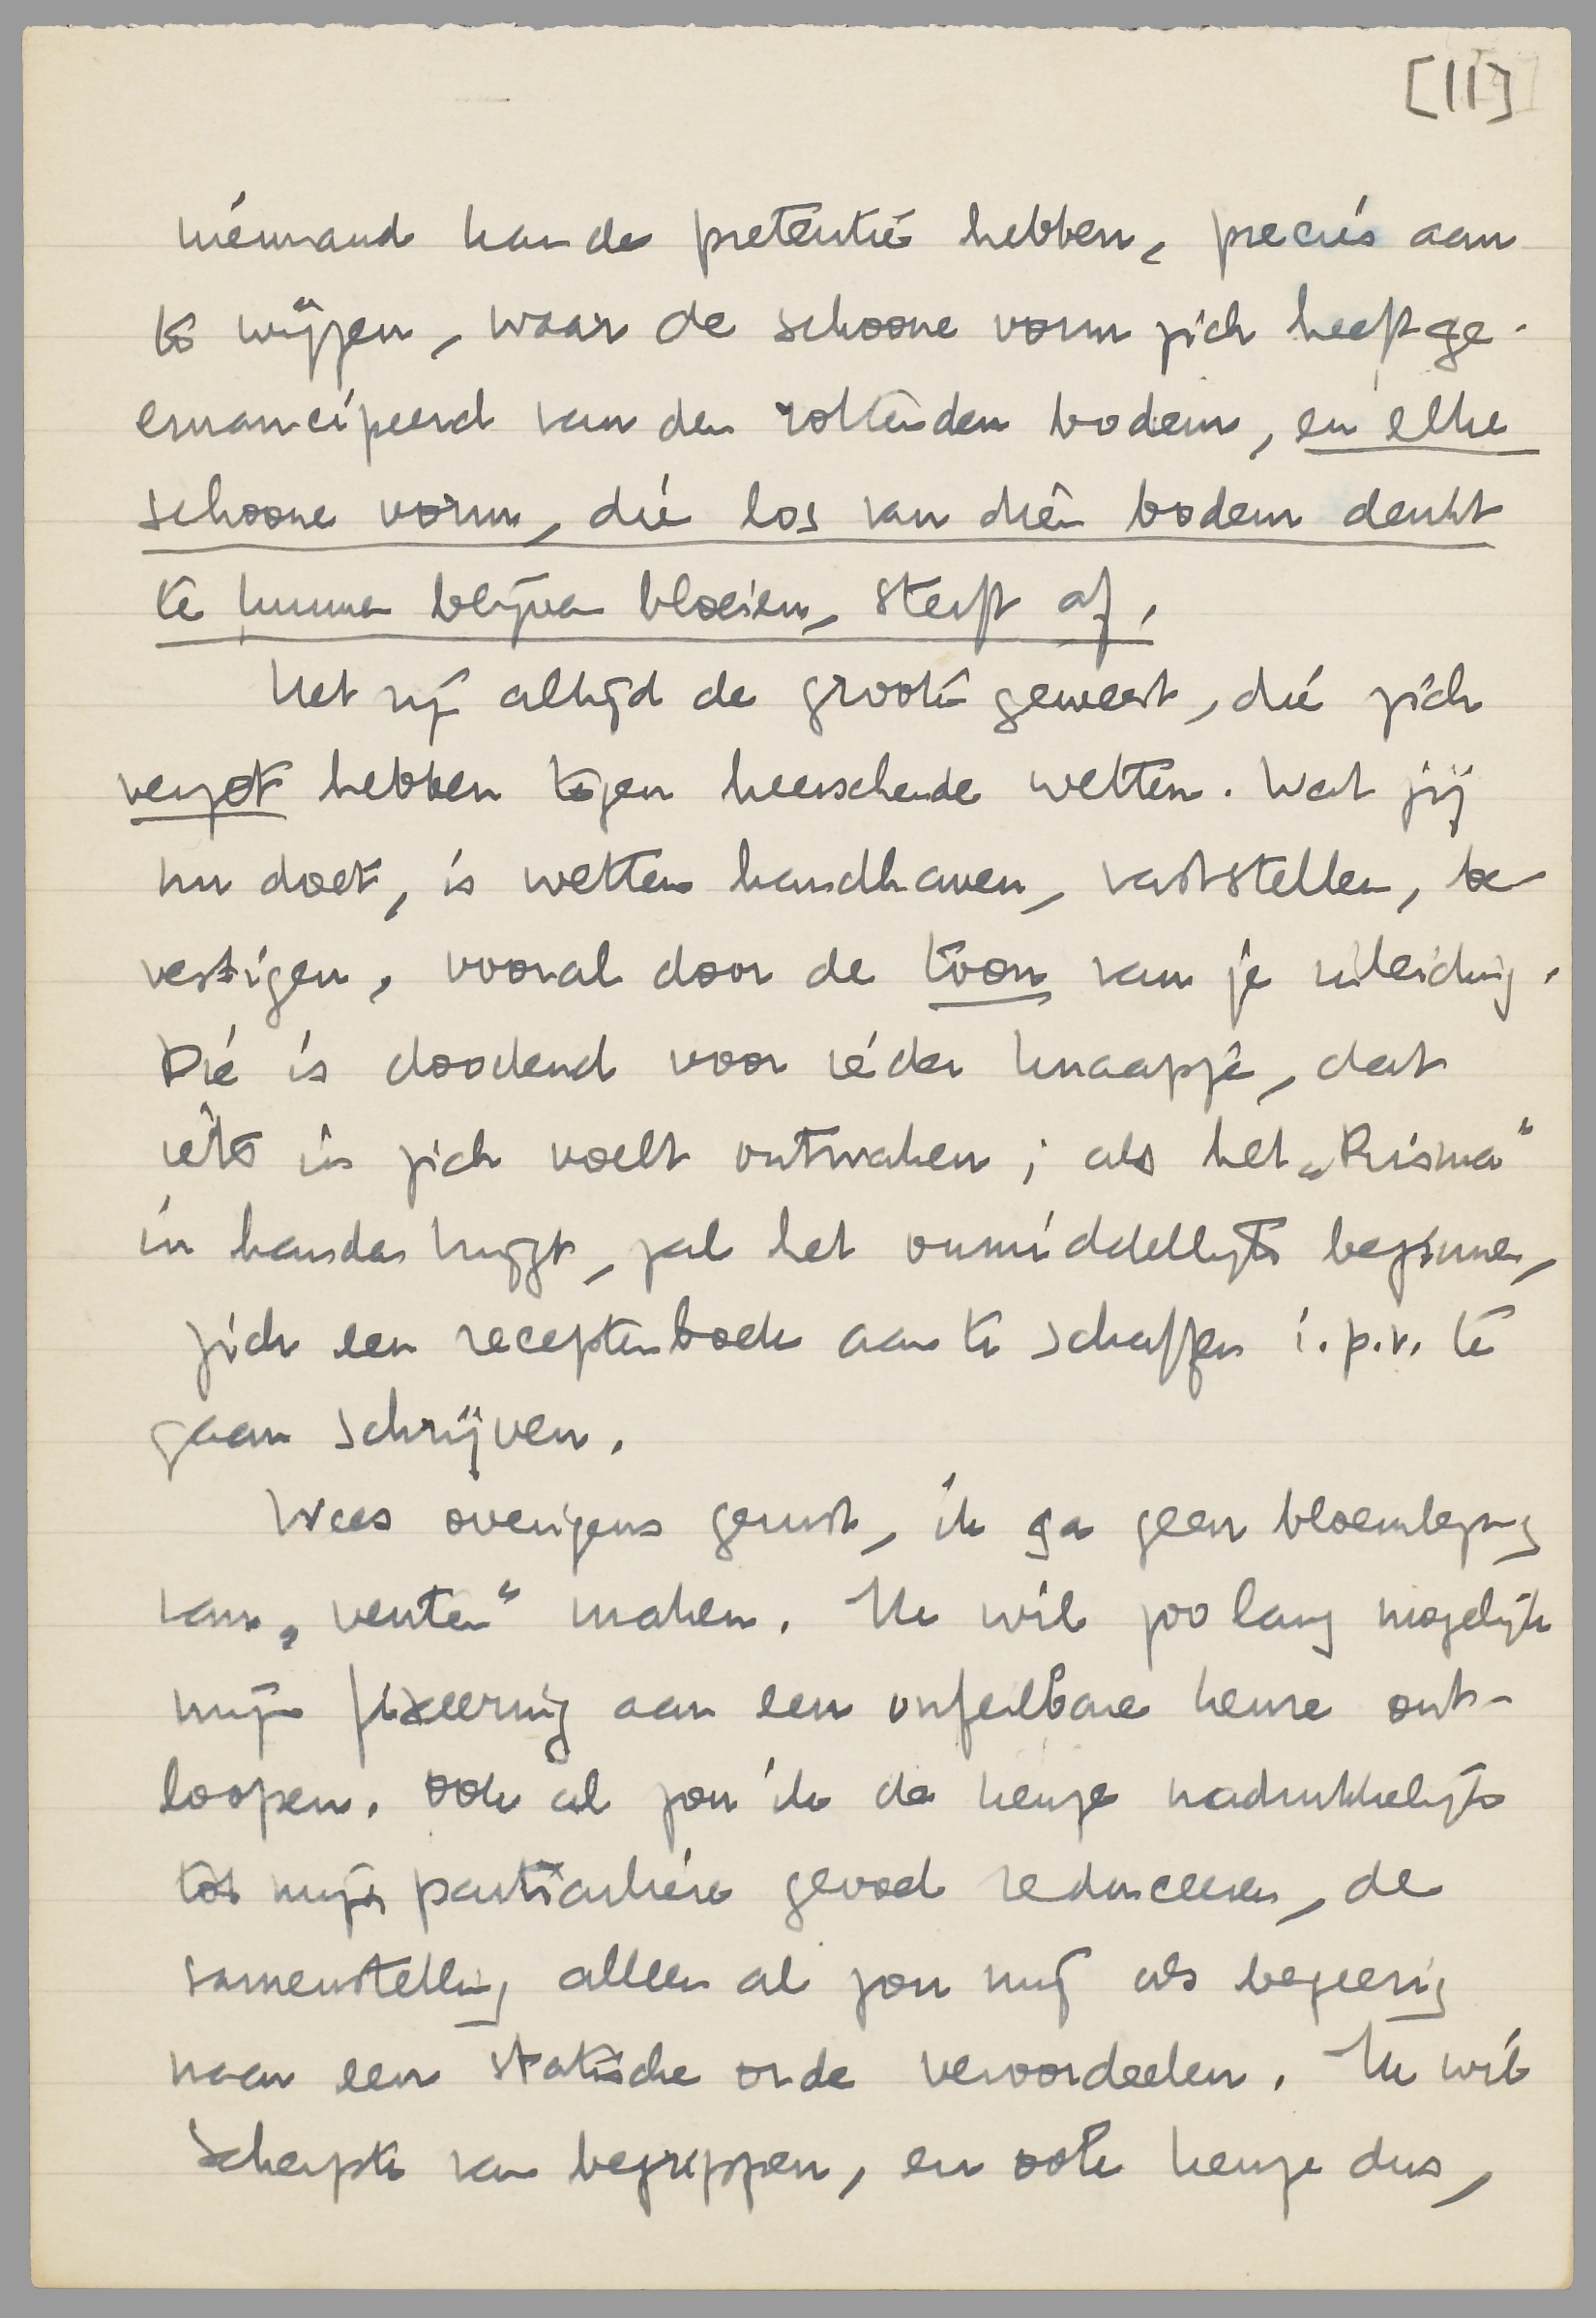 [11]
niemand kan de pretentie hebben, precies aan
te wijzen, waar de schoone vorm zich heeft ge-
emancipeerd van den rottenden bodem, en elke
schoone vorm, die los van dien bodem denkt
te kunnen blijven bloeien, sterft af.
Het zijn altijd de grooten geweest, die zich
verzet hebben tegen heerschende wetten. Wat jij
nu doet, is wetten handhaven, vaststellen, be-
vestigen, vooral door de toon van je inleiding.
Die is doodend voor ieder knaapje, dat
iets in zich voelt ontwaken; als het „Prisma"
in handen krijgt, zal het onmiddellijk beginnen,
zich een receptenboek aan te schaffen i.p.v. te
gaan schrijven.
Wees overigens gerust, ik ga geen bloemlezing
van „venten" maken. Ik wil zoo lang mogelijk
mijn fixeering aan een onfeilbare keuze ont-
loopen. Ook al zou ik de keuze nadrukkelijk
tot mijn particuliere gevoel reduceeren, de
samenstelling alleen al zou mij als begeerig
naar een statische orde veroordeelen. Ik wil
scherpte van begrippen, en ook keuze dus,